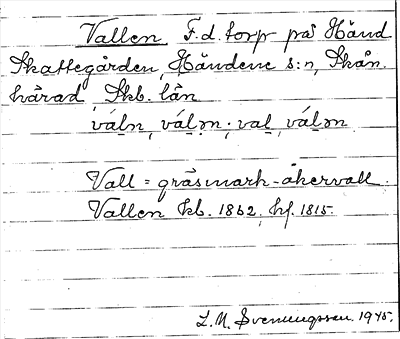 Vallen F.d. torp på Händ
Skattegården, Händene s:n, Skån.
härad, Skb. län
váln, váləm; val, váləm
Vall = gräsmark-åkervall.
Vallen kb. 1862, hf. 1815.
L. M. Svenungsson. 1945.